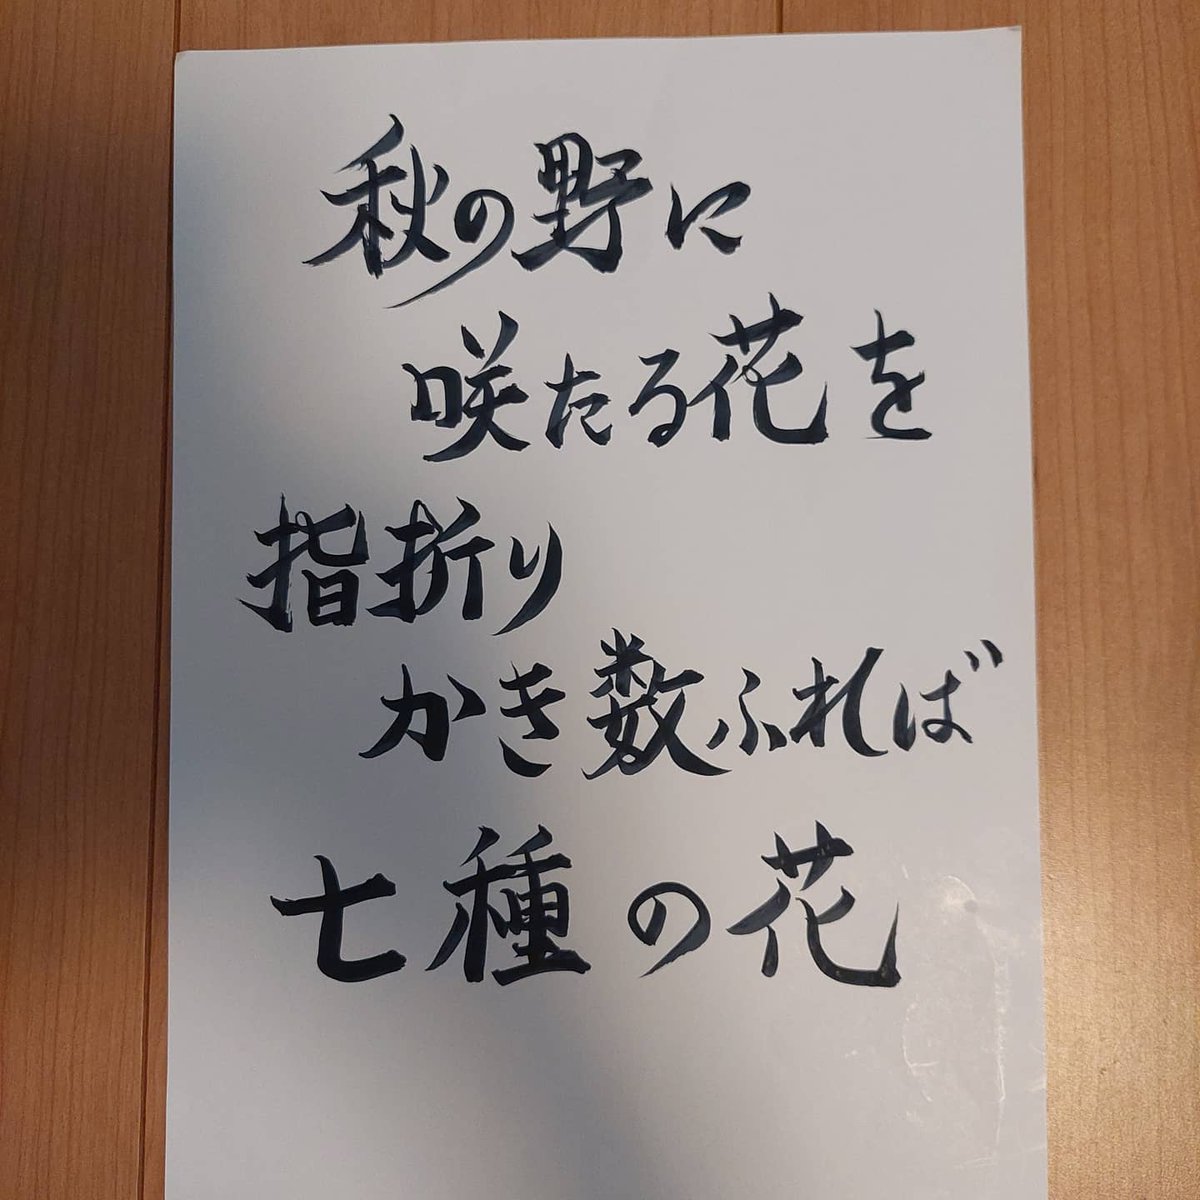 秋の野に
咲たる花を
指折り
かき数ふれば
七種の花